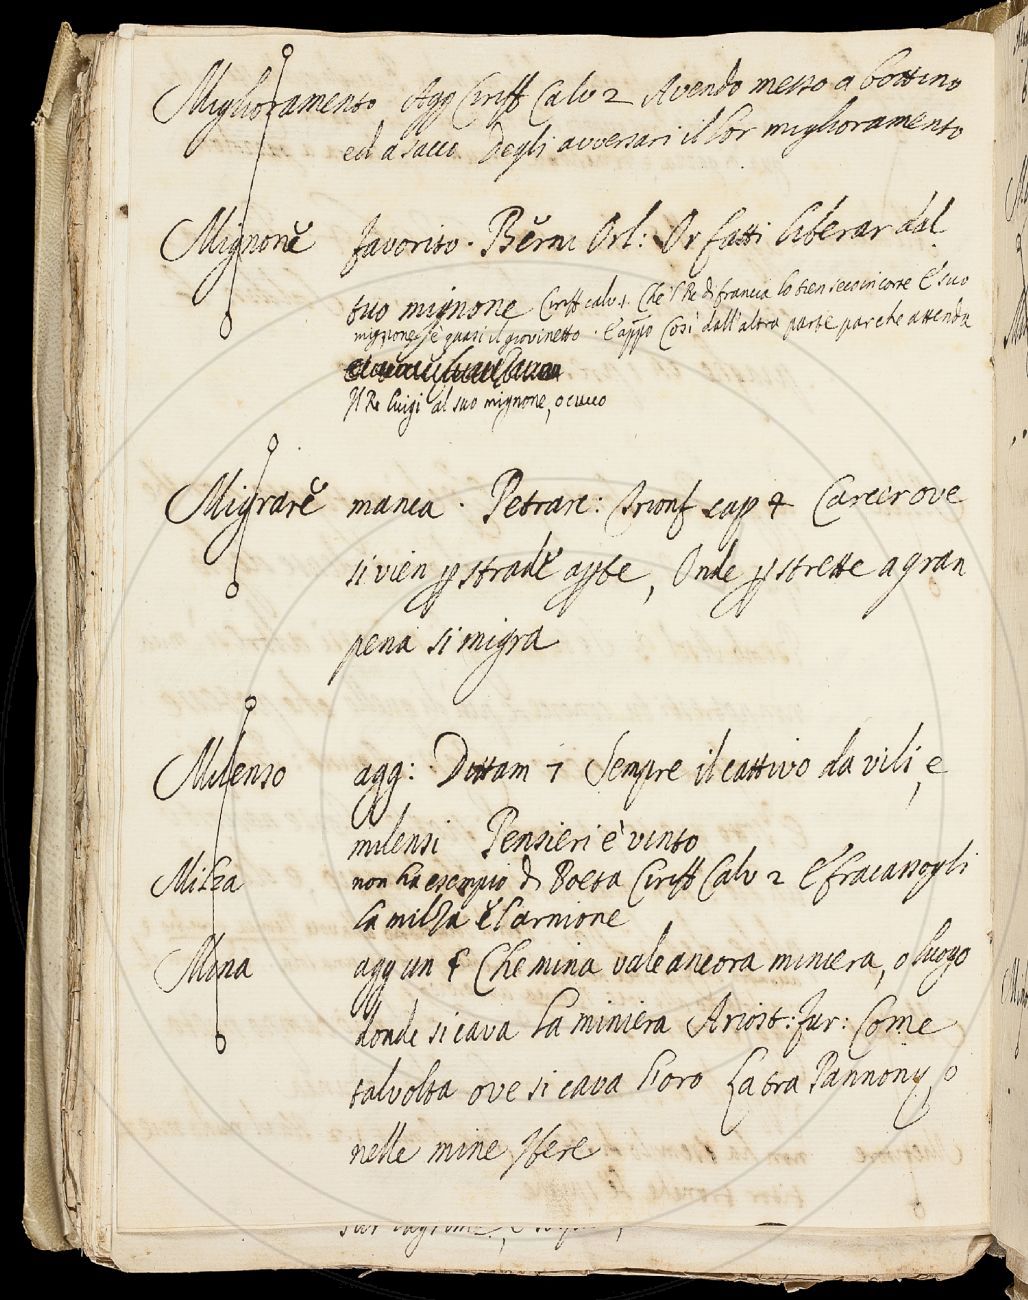 Miglioramento Agg Ciriff Calv 2 Avendo messo a bottino
ed a sacco degli avversari il lor miglioramento
Mignone favorito. Berni Orl: Or fatti liberar dal
tuo mignone Ciriff calv 4. Che'l Re di francia lo tien seco in corte E' suo
mignone, è quasi il giovinetto. E appo Così dall'altra parte par che attenda
Il Re luigi al suo mignone, o cucco
Migrare manca. Petrarc: Trionf cap 4 Carcer ove
si vien p strade apte, Onde p strette a gran
pena si migra
Milenso agg: Dittam 1 Sempre il cattivo da vili, e
milensi Pensieri è vinto
Milza non ha esempio di Poeta Ciriff Calv 2 E fracassogli
la milza e l'arnione
Mina agg un § Che mina vale ancora miniera, o luogo
donde si cava la miniera Ariost: fur: Come
talvolta ove si cava l'oro La tra Pannonij, o
nelle mine Ibere